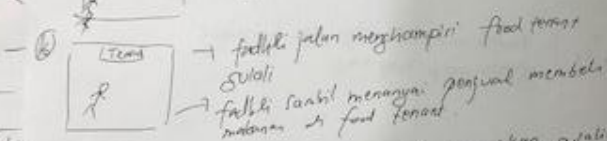 6
Tenant
→ fadhli jalan menghampiri food tenant
→ fadhli sambil menanyai penjual membeli
makanan di food tenant